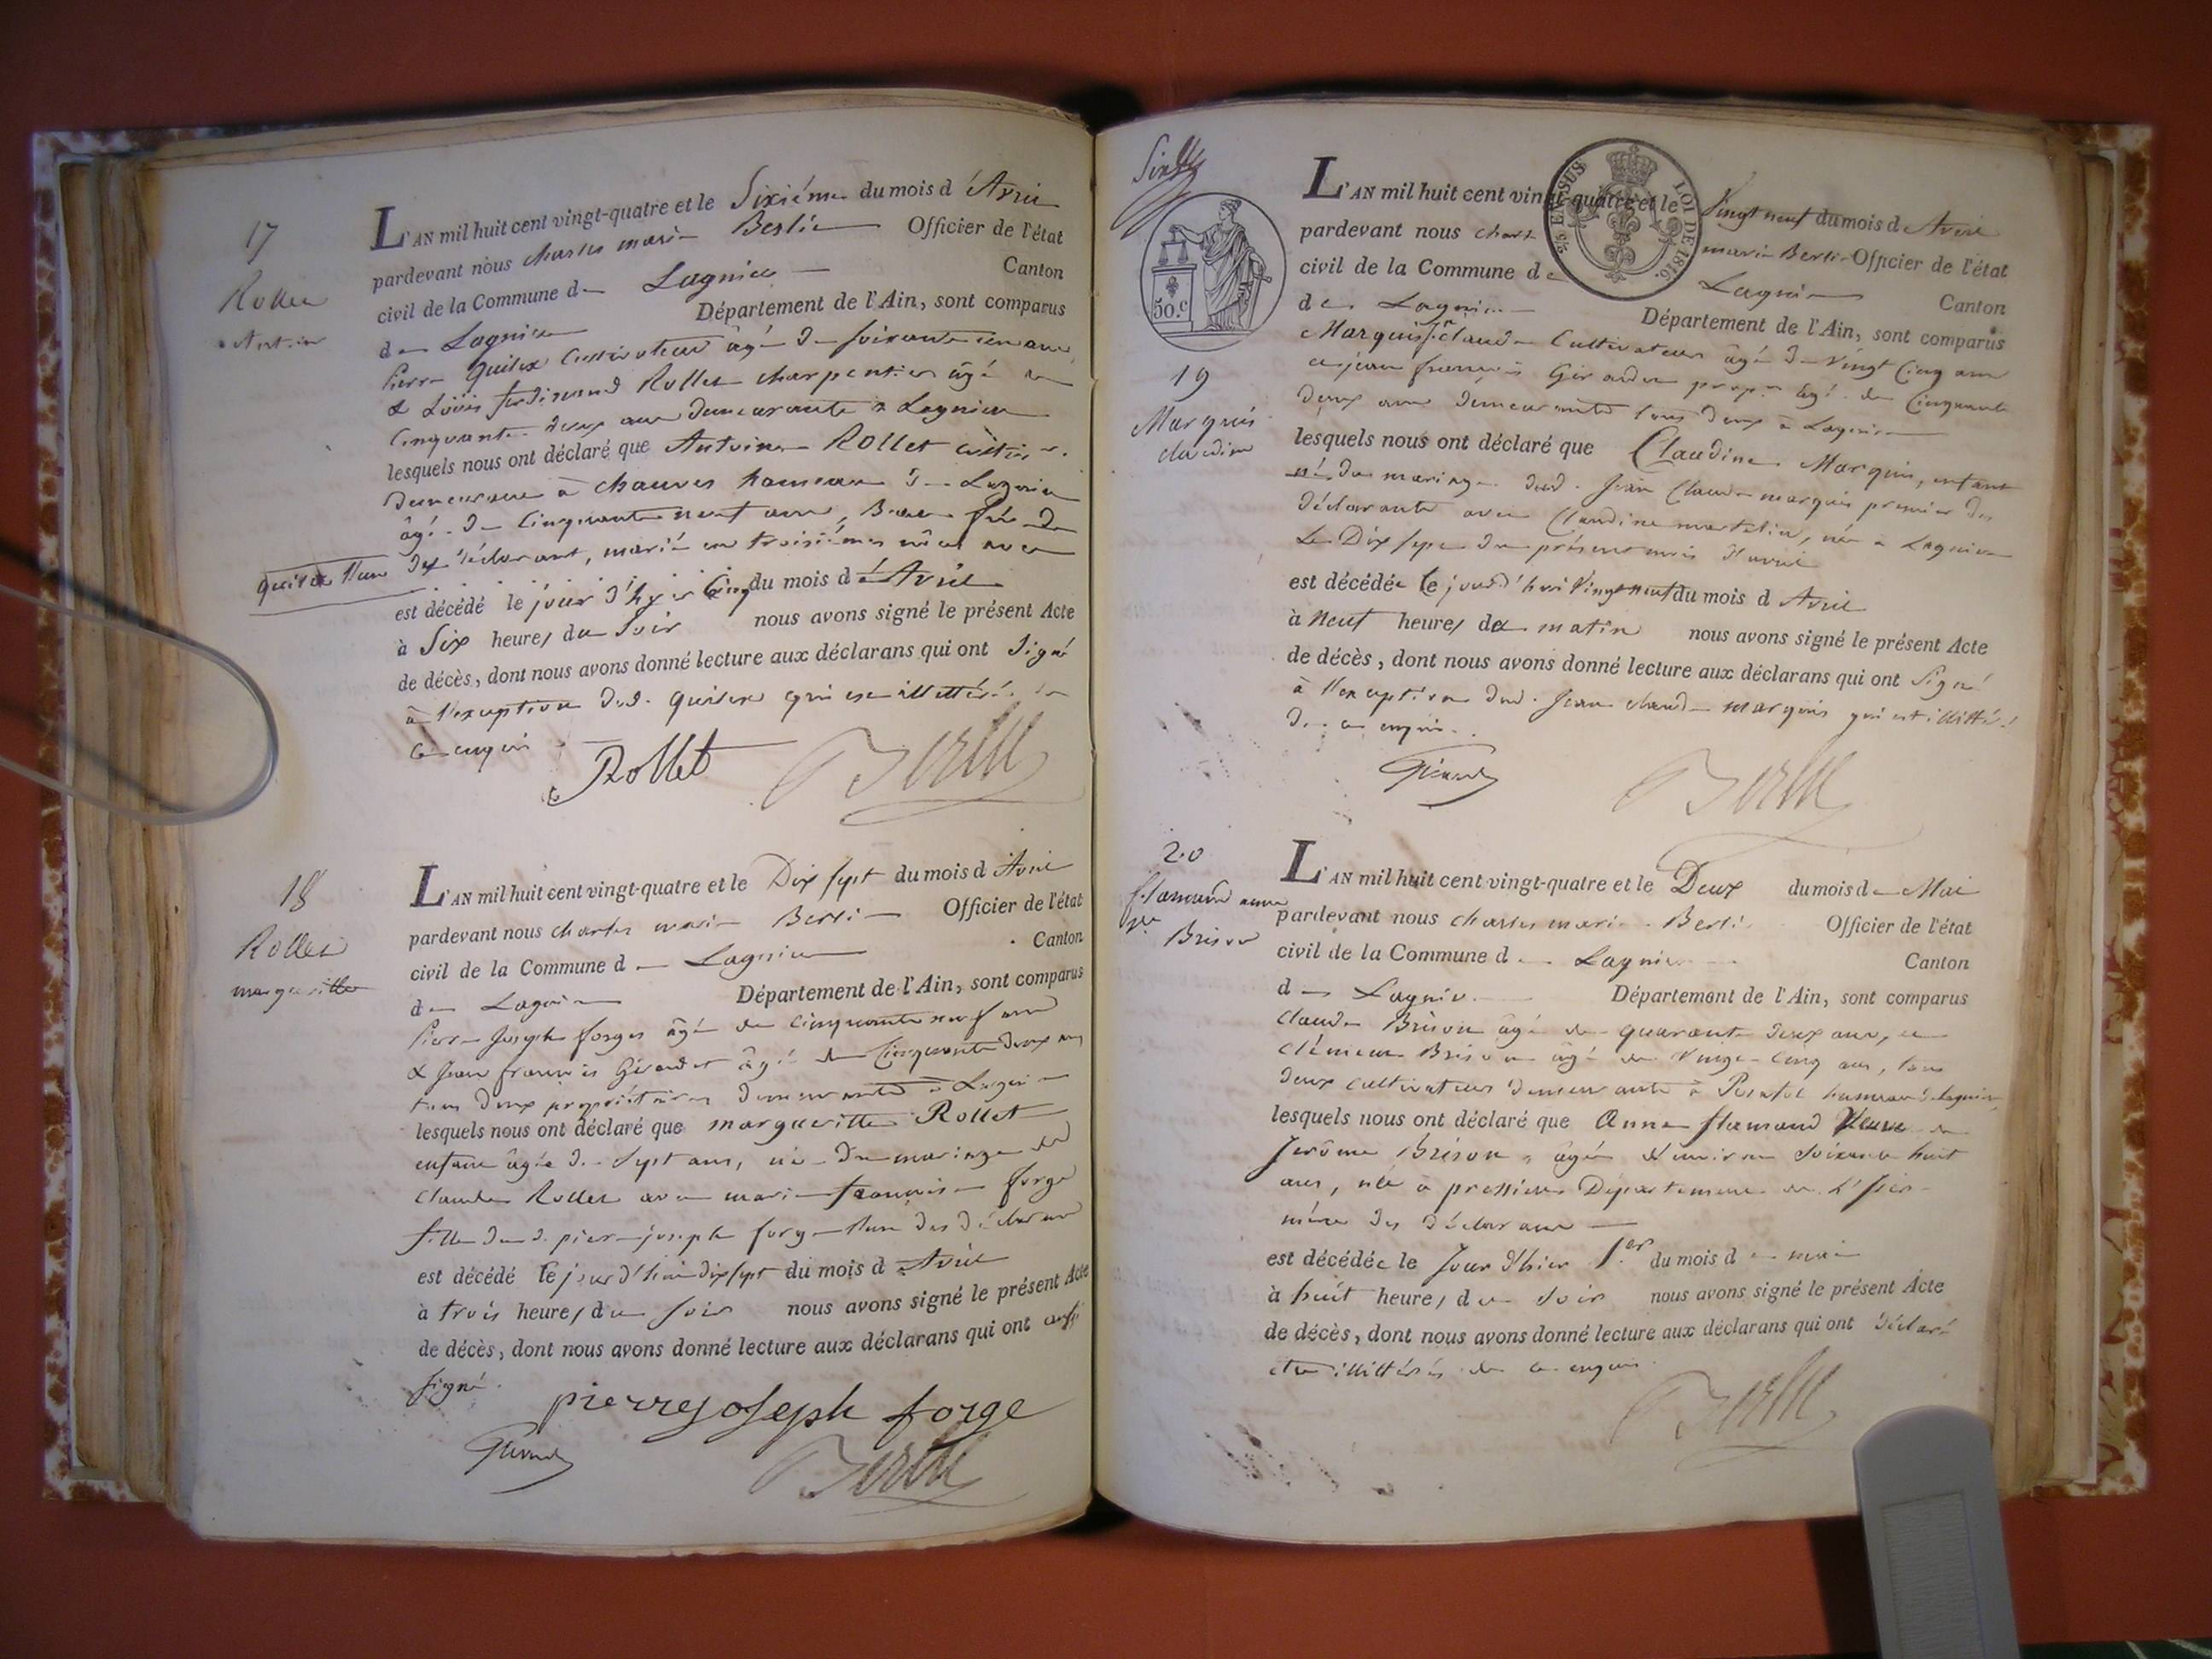 17
Rollet
Antoine
L'AN mil huit cent vingt-quatre et le Sixiéme du mois d'Avril
pardevant nous charles marie Berlie Officier de l'état
civil de la Commune de Lagnieu Canton
de Lagnieu Département de l'Ain, sont comparus
Pierre Quilex Cultivateur âgé de soixante un ans
& Loüis ferdinand Rollet charpentier âgé de
Cinquante deux ans demeurants a Lagnieu
lesquels nous ont déclaré que Antoine Rollet
demeurant à Chauves hameau de Lagnieu
âgé de Cinquante neuf ans, Beau frére de
quilex l'un des déclarant, marié en troisiémes nôces avec
est décédé le jour d'hyer Cinq du mois d'Avril
à Six heures du Soir nous avons signé le présent Acte
de décès, dont nous avons donné lecture aux déclarans qui ont Signé
à l'exception dud. quilex qui est illettéré de
ce enquis
Rollet Berlie
18
Rollet
margueritte
L'AN mil huit cent vingt-quatre et le Dix sept du mois d Avril
pardevant nous charles marie Berlie Officier de l'état
civil de la Commune de Lagnieu Canton
de Lagnieu Département de l'Ain, sont comparus
Pierre Joseph forges âgé de cinquante neuf ans
& Jean françois Gérardet âgé de Cinquante deux ans
tous deux propriétaires demeurants à Lagnieu
lesquels nous ont déclaré que margueritte Rollet
enfant âgée de Sept ans, née du mariage de
Claude Rollet avec marie françoise forge
fille du d. pierre joseph forge l'un des déclarant
est décédé le jourd'hui dix sept du mois d Avril
à trois heures du soir nous avons signé le présent Acte
de décès, dont nous avons donné lecture aux déclarans qui ont aussi
signé.
pierre joseph forge
Berlie
50.c
19
Marquis
claudine
EN SUS LOI DE 1816.
L'AN mil huit cent vingt-quatre et le Vingt neuf du mois d Avril
pardevant nous charles marie Berlie Officier de l'état
civil de la Commune de Lagnieu Canton
de Lagnieu Département de l'Ain, sont comparus
Marquis Jn claude Cultivateur âgé de Vingt Cinq ans
et jean françois Gerardet propre âgé de Cinquante
deux ans demeurants tous deux à Lagnieu
lesquels nous ont déclaré que Claudine Marquis, enfant
né du mariage dud. Jean Claude marquis premier des
déclarants avec Claudine martelin, née a Lagnieu
Le Dix sept du présent mois d'avril
est décédée le jourd'hui Vingt neuf du mois d Avril
à Neuf heures du matin nous avons signé le présent Acte
de décès, dont nous avons donné lecture aux déclarans qui ont Signé
à l'exception dud. Jean claude marquis qui est illittéré
de ce enquis.
Berlie
20
flamand anne
ve Brison
L'AN mil huit cent vingt-quatre et le Deux du mois de Mai
pardevant nous charles marie Berlie Officier de l'état
civil de la Commune de Lagnieu Canton
de Lagnieu Département de l'Ain, sont comparus
Claude Brison âgé de quarante deux ans, et
Clément Brison âgé de Vingt Cinq ans, tous
deux cultivateurs demeurants à hameau de Lagnieu
lesquels nous ont déclaré que Anne flamand Veuve de
Jerôme Brison, âgée d'environ Soixante huit
ans, née a Département de L'Isère
mère des déclarans
est décédée le Jour d'hier 1.er du mois de mai
à huit heures du Soir nous avons signé le présent Acte
de décès, dont nous avons donné lecture aux déclarans qui ont déclaré
etre illittérés de ce enquis
Berlie